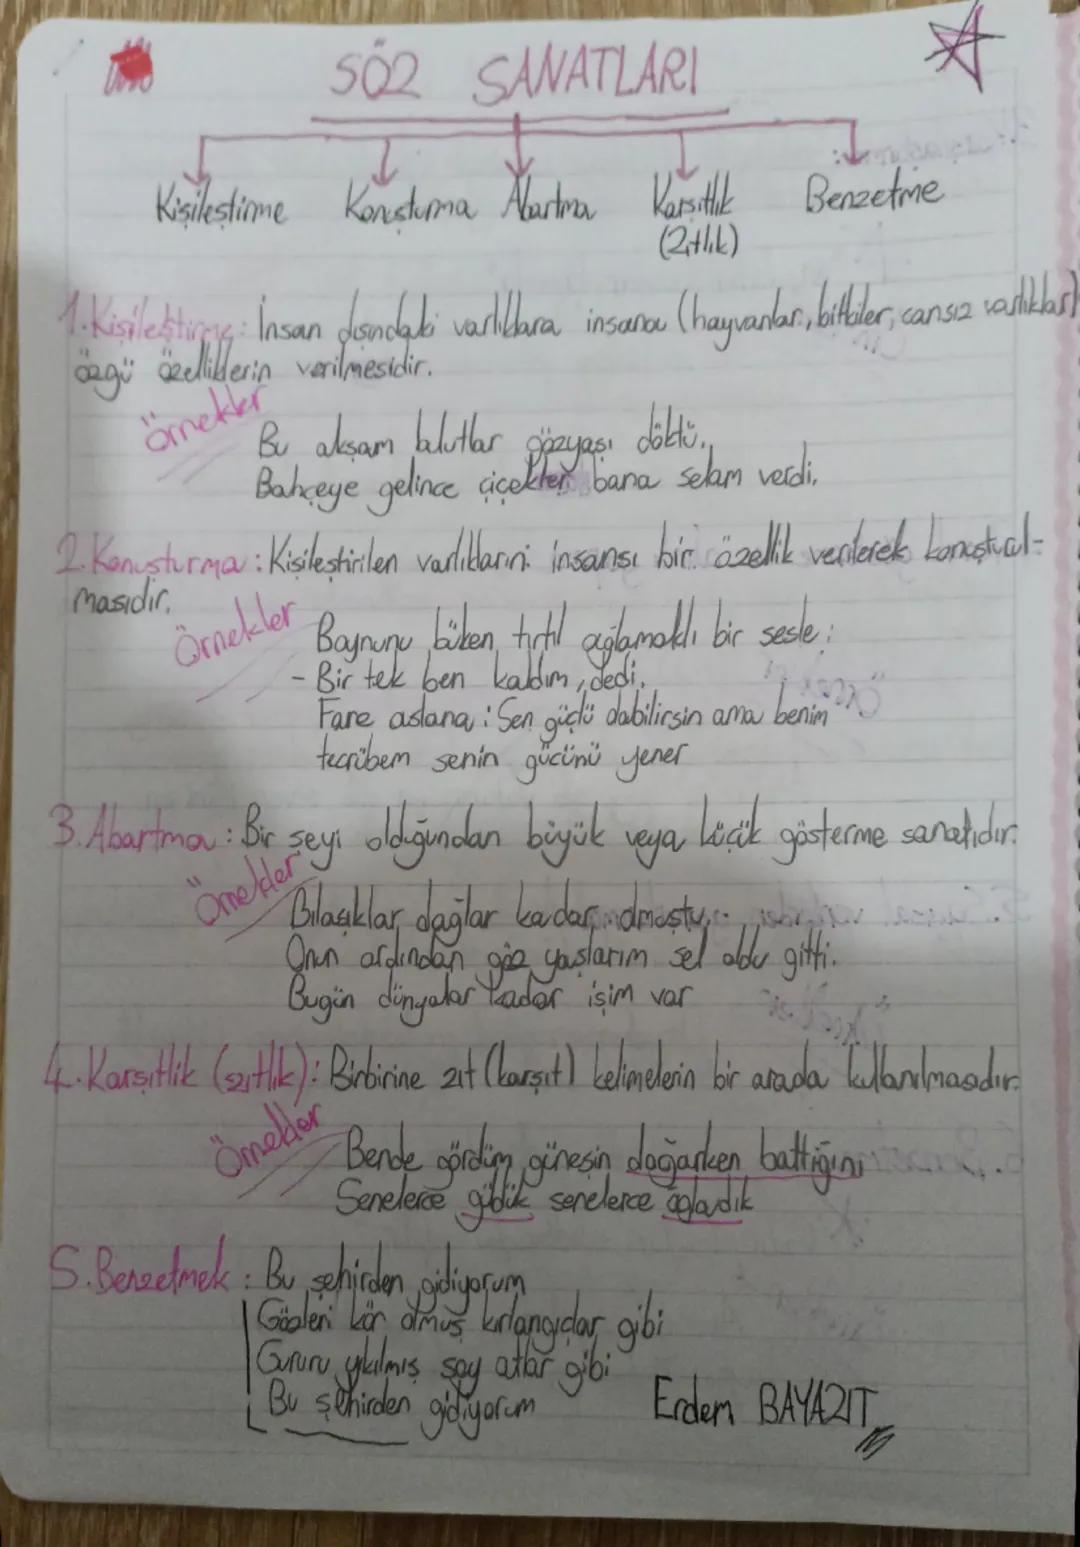 SÖZ SANATLARI
Kişileştirme Konuşturma Abartma Karşıtlık Benzetme
(Zıtlık)
1.Kişileştirme: İnsan dışındaki varlıklara insana (hayvanlar, bitkiler, cansız varlıklar)
özgü özelliklerin verilmesidir.
Örnekler
Bu akşam bulutlar gözyaşı döktü.
Bahçeye gelince çiçekler bana selam verdi.
2.Konuşturma: Kişileştirilen varlıkların insansı bir özellik verilerek konuşturul-
masıdır.
Örnekler
Boynunu büken tırtıl ağlamaklı bir sesle:
- Bir tek ben kaldım, dedi.
Fare aslana: Sen güçlü olabilirsin ama benim
tecrübem senin gücünü yener
3.Abartma: Bir şeyi olduğundan büyük veya küçük gösterme sanatıdır.
Örnekler
Bılaşıklar dağlar kadar olmuştu.
Onun ardından göz yaşlarım sel oldu gitti.
Bugün dünyalar kadar işim var
4.Karşıtlik (zıtlık): Birbirine zıt (karşıt) kelimelerin bir arada kullanılmasıdır.
Örnekler
Bende gördüm güneşin doğarken battığını
Senelerce güldük senelerce ağladık
5.Benzetmek: Bu şehirden gidiyorum
Gözleri kör olmuş kırlangıçlar gibi
Gururu yıkılmış soy atlar gibi
Bu şehirden gidiyorum
Erdem BAYAZIT